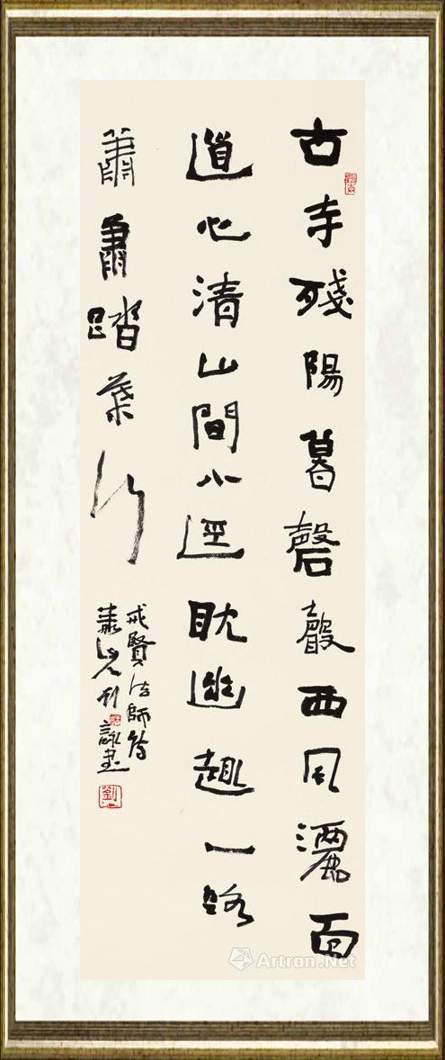 古寺殘陽暮磬聲西风灑面
道心清山間小逕耽幽趣一路
蕭蕭踏葉行
戒賢法師詩
詠書
Artron.Net